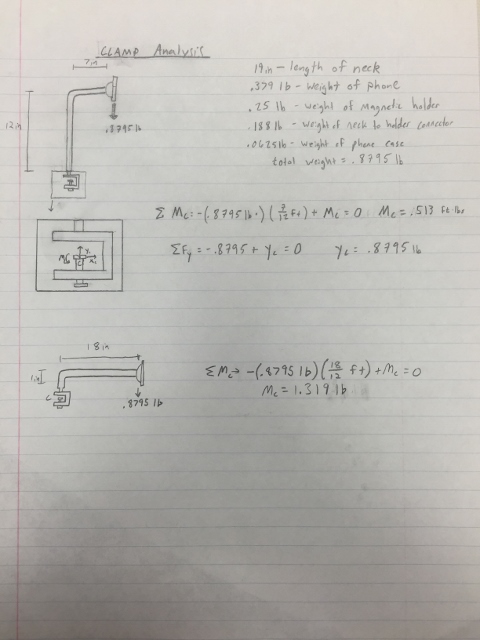 CLAMP Analysis
7in
12in
.8795 lb
19in - length of neck
.379 lb - weight of phone
.25 lb - weight of magnetic holder
.188 lb - weight of neck to holder connector
.0625lb - weight of phone case
total weight = .8795 lb
Σ Mc = -(.8795 lb.)(7/12 ft) + Mc = 0 Mc = .513 ft·lbs
ΣFy = -.8795 + Yc = 0 Yc = .8795 lb
Mc
18in
1in
C
.8795 lb
ΣMc → -(.8795 lb)(18/12 ft) + Mc = 0
Mc = 1.319 lb